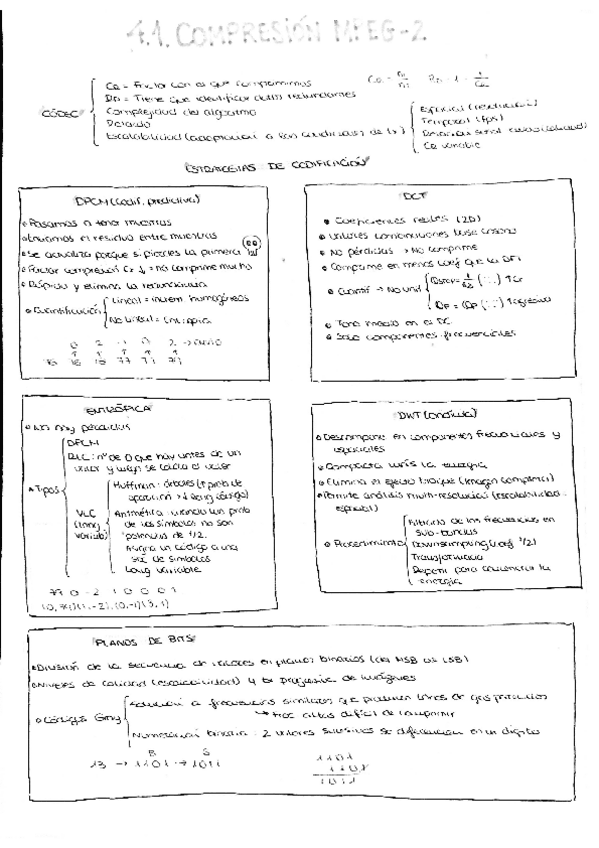 4.1. COMPRESIÓN MPEG-2
CÓDEC
CR = Factor con el que comprimimos
RD = Tiene que identificar datos redundantes
Complejidad del algoritmo
Retardo
Escalabilidad (adaptación a las condiciones de tx)
Espacial (resolución)
Temporal (fps)
CR variable
ESTRATEGIAS DE CODIFICACIÓN
DPCM (codif. predictiva)
Pasamos a tener muestras
Enviamos el residuo entre muestras
Se actualiza porque si pierdes la primera
Factor compresión CR ↓ = no comprime mucho
Rápido y elimina la redundancia
Cuantificación
Lineal = homogéneos
No Lineal =
DCT
Coeficientes reales (2D)
Valores combinaciones base coseno
No pérdidas → No comprime
Comprime en menos coef que la DFT
Cuantif → No unif
Tono medio en el DC
Solo componentes frecuenciales
ENTRÓPICA
No hay pérdidas
Tipos
DPCM
RLC: nº de 0 que hay antes de un
valor y luego se coloca el valor
VLC
(long
variable)
Huffman: árboles (↑ prob de
aparición → ↓ long código)
Aritmética: cuando las prob
de los símbolos no son
potencias de 1/2.
Asigna un código a una
sec de símbolos
Long variable
77 0 -2 1 0 0 0 1
(0,77)(1,-2),(0,-1)(3,1)
DWT (ondícula)
Descompone en componentes frecuenciales y
espaciales
Compacta más la energía
Elimina el efecto bloque (imagen completa)
Permite análisis multi-resolución (escalabilidad
espacial)
Procedimiento
Filtrado de las frecuencias en
sub-bandas
Downsampling (coef 1/2)
Transformada
Repetir para concentrar la
energía
PLANOS DE BITS
División de la secuencia de valores en planos binarios (del MSB al LSB)
Niveles de calidad (escalabilidad) y tx progresiva de imágenes
Código Gray
Numeración binaria: 2 valores sucesivos se diferencian en un dígito
B G
13 → 1101 → 1011
1101
1101
1011